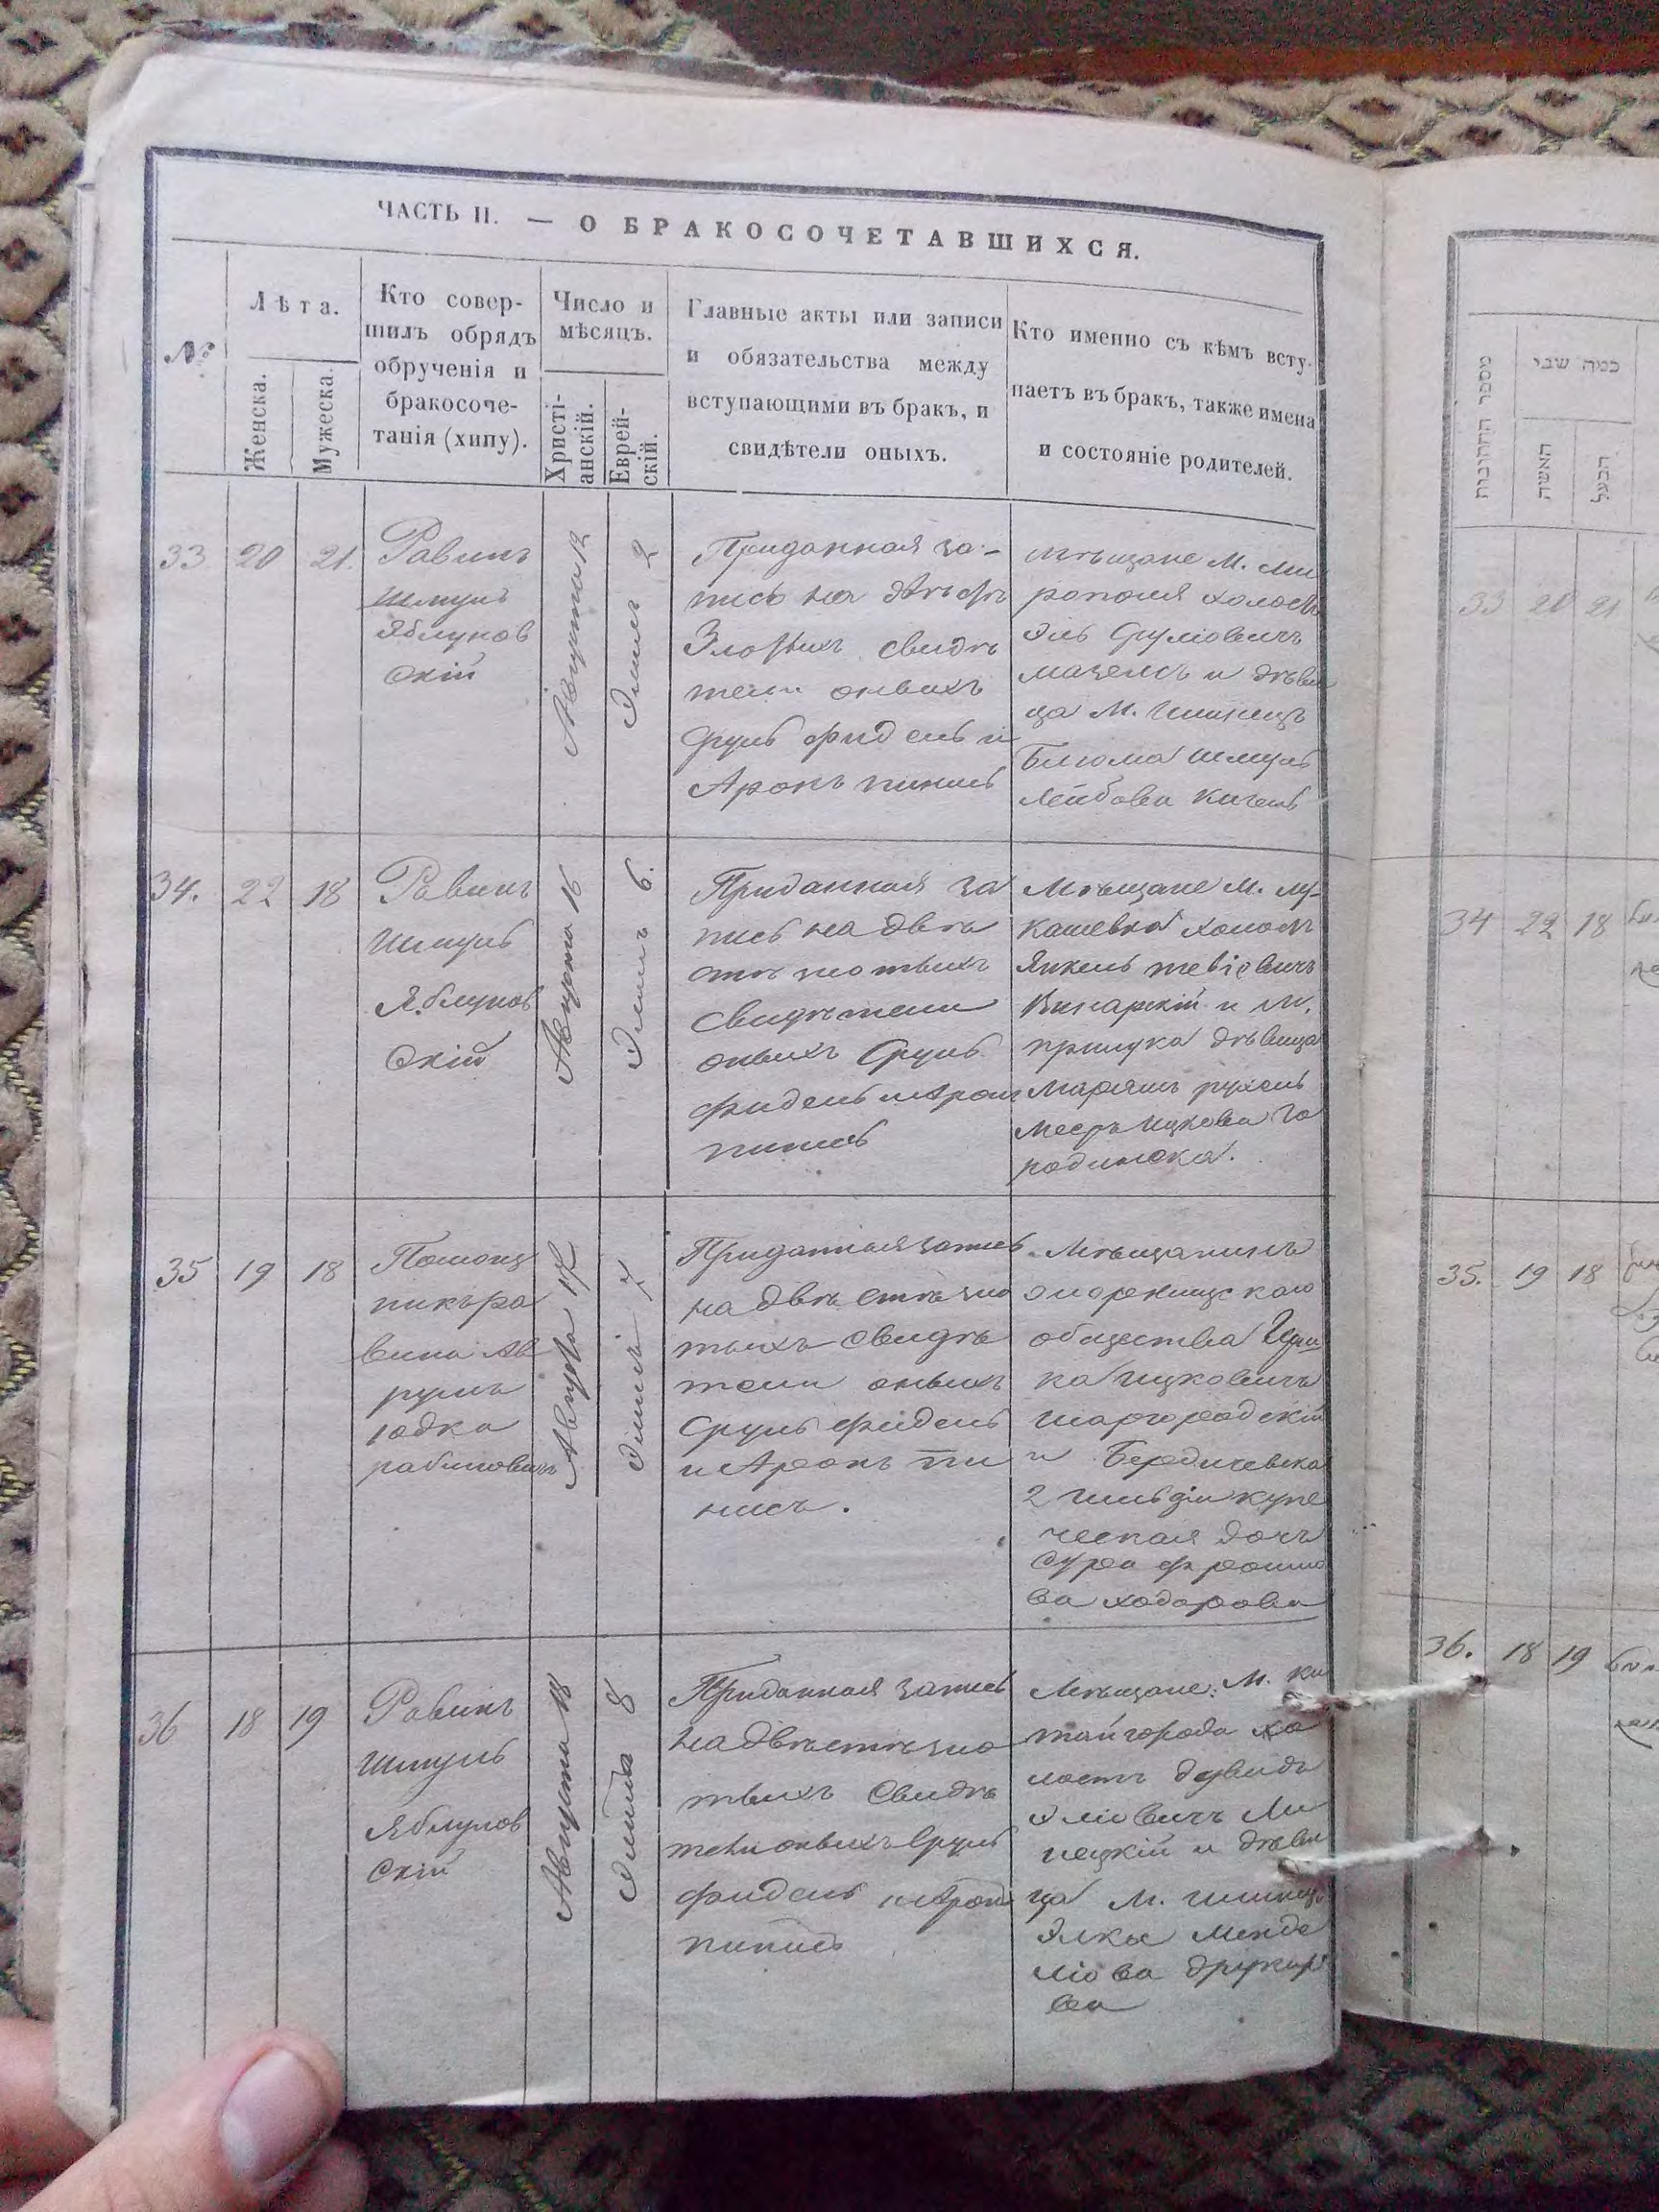 ЧАСТЬ II. — О БРАКОСОЧЕТАВШИХСЯ.
№
Лѣта.
Женска.
Мужеска.
Кто совер-
шилъ обрядъ
обрученія и
бракосоче-
танія (хипу).
Число и
мѣсяцъ.
Христі-
анскій.
Еврей-
скій.
Главные акты или записи
и обязательства между
вступающими въ бракъ, и
свидѣтели оныхъ.
Кто именно съ кѣмъ всту-
паетъ въ бракъ, также имена
и состояніе родителей.
33
20
21.
Равинъ
Шмуль
Яблунов
скій
Августа 12
Элиль 2
Приданная за-
пись на двѣстѣ
Злотыхъ свидѣ
тели оныхъ
Сруль фидель и
Аронъ
Мѣщане М. Ми
рополя холостъ
Эль Сруліовичъ
и дѣви
ца М.
Блюма Шмуль
Лейбова
34.
22
18
Равинъ
Шмуль
Яблунов
скій
Августа 16
Элиль 6.
Приданная за
пись на двѣ
стѣ злотыхъ
Свидѣтели
оныхъ Сруль
фидель и Арон
Мѣщане М. лу-
кашевка холостъ
Янкель тевіевичъ
Винарскій и М.
прилука дѣвица
Мееръ Ицкова Го
родинска.
35
19
18
Помощ
никъ ра
вина Ав
румъ
юдка
рабиновичъ
Августа 17
Элиль 7
Приданная запись
на двѣ стѣ зло
тыхъ свидѣ
тели оныхъ
Сруль фидель
и Аронъ
Мѣщанинъ
общества
ка ицковичъ
шаргородскій
и Бердичевска
2 гильдіи купе
ческая дочь
Сура
ва ходорова
36
18
19
Равинъ
Шмуль
Яблунов
скій
Августа 18
8
Приданная запись
на двѣстѣ зло
тыхъ Свидѣ
тели оныхъ Сруль
фидель и Арон
Мѣщане: М. ки
тайгорода хо
лостъ давидъ
Эліовичъ Ли
пецкій и дѣви
ца М.
Элка Менде
ліова друкар
ова
כמה שני
מספר החתונות
האשה
הבעל
33 20 21
34 22 18
35. 19 18
36. 18 19